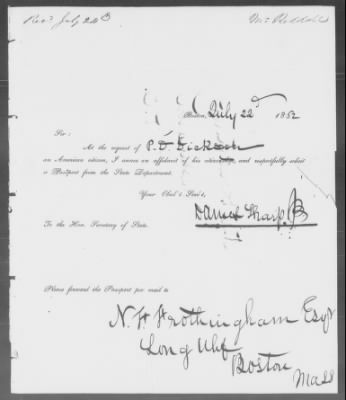 Rec'd July 24th
Boston, July 22d 1852
Sir:
At the request of P. D.
an American citizen, I annex an affidavit of his citizenship, and respectfully solicit
a Passport from the State Department.
Your Obd't Serv't,
Daniel Sharp, Jr
To the Hon. Secretary of State.
Please forward the Passport per mail to
N. H. Frothingham Esqr
Long Whf
Boston
Mass